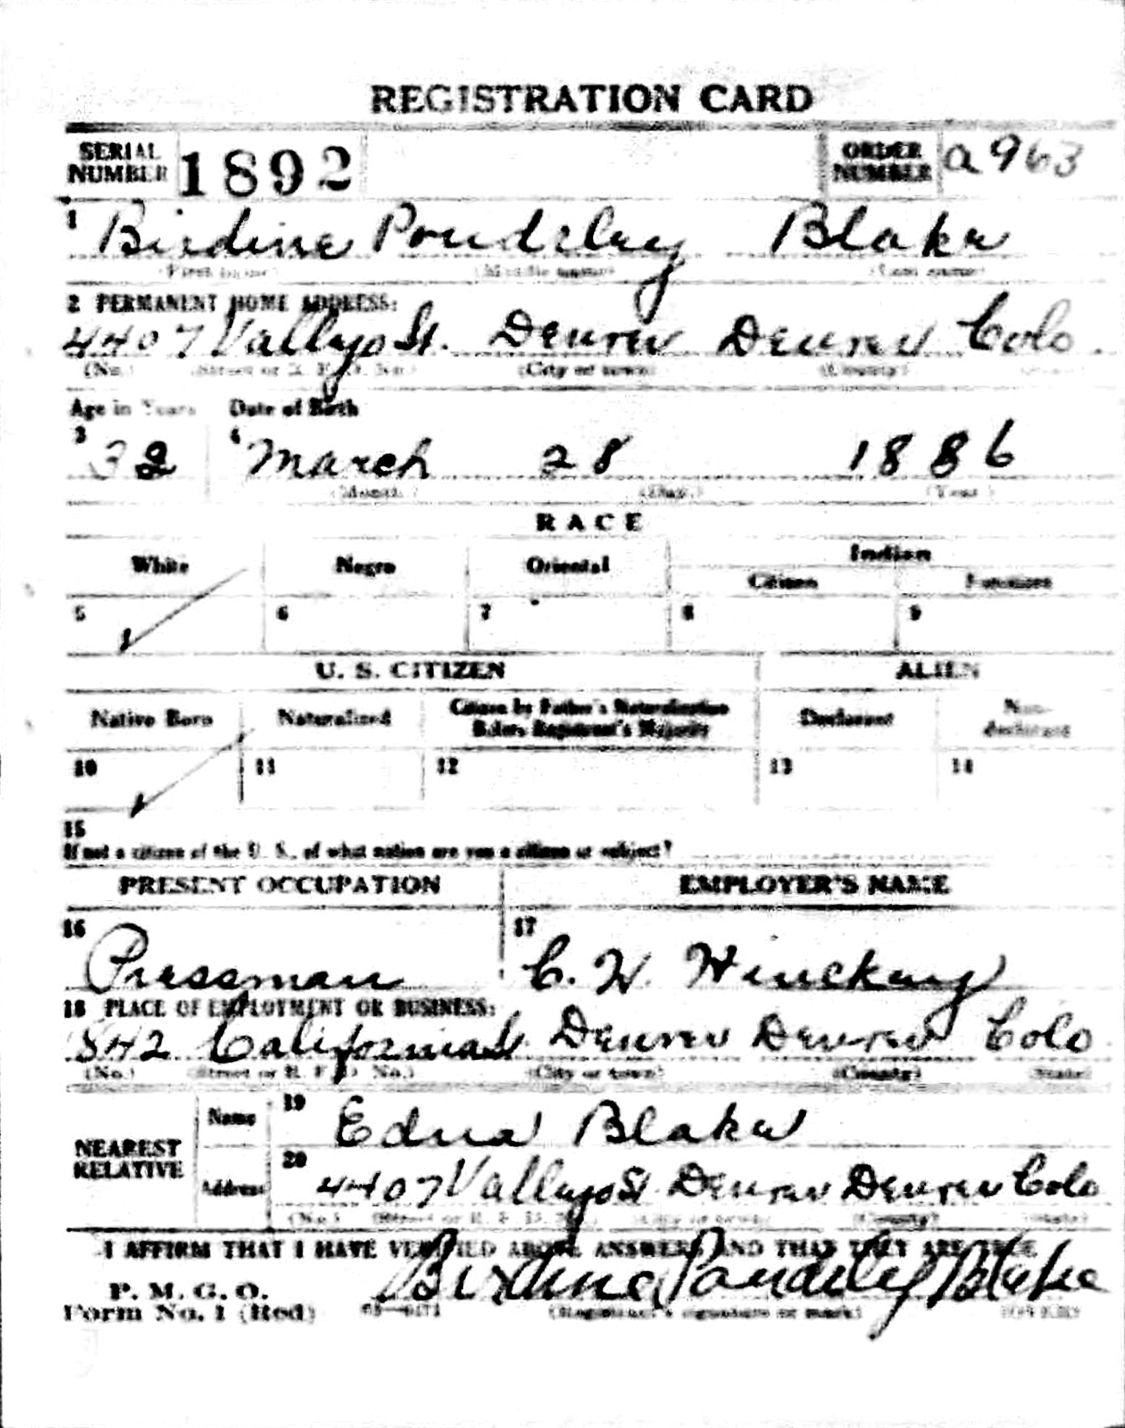 REGISTRATION CARD
SERIAL NUMBER 1892 ORDER NUMBER a963
1 Birdine Poudeley Blake
(First name) (Middle name) (Last name)
2 PERMANENT HOME ADDRESS:
4407 Vallyo St. Denver Denver Colo.
(No.) (Street or R. F. D. No.) (City or town) (County)
Age in Years Date of Birth
3 32 4 March 28 1886
(Month.) (Day.) (Year)
RACE
White Negro Oriental Indian
Citizen
5 6 7 8 9
U. S. CITIZEN ALIEN
Native Born Naturalized Citizen by Father's Naturalization Before Registrant's Majority Declarant Non-declarant
10 11 12 13 14
15
If not a citizen of the U. S., of what nation are you a citizen or subject?
PRESENT OCCUPATION EMPLOYER'S NAME
16 Pressman 17 C. W.
18 PLACE OF EMPLOYMENT OR BUSINESS:
842 California St Denver Denver Colo
(No.) (Street or R. F. D. No.) (City or town) (County) (State)
NEAREST RELATIVE Name 19 Edna Blake
Address 20 4407 Vallyo St Denver Denver Colo
(No.) (Street or R. F. D. No.) (City or town) (County) (State)
I AFFIRM THAT I HAVE VERIFIED ABOVE ANSWERS AND THAT THEY ARE TRUE
P. M. G. O.
Form No. 1 (Red) (Registrant's signature or mark) (OVER)
Birdine Poudeley Blake